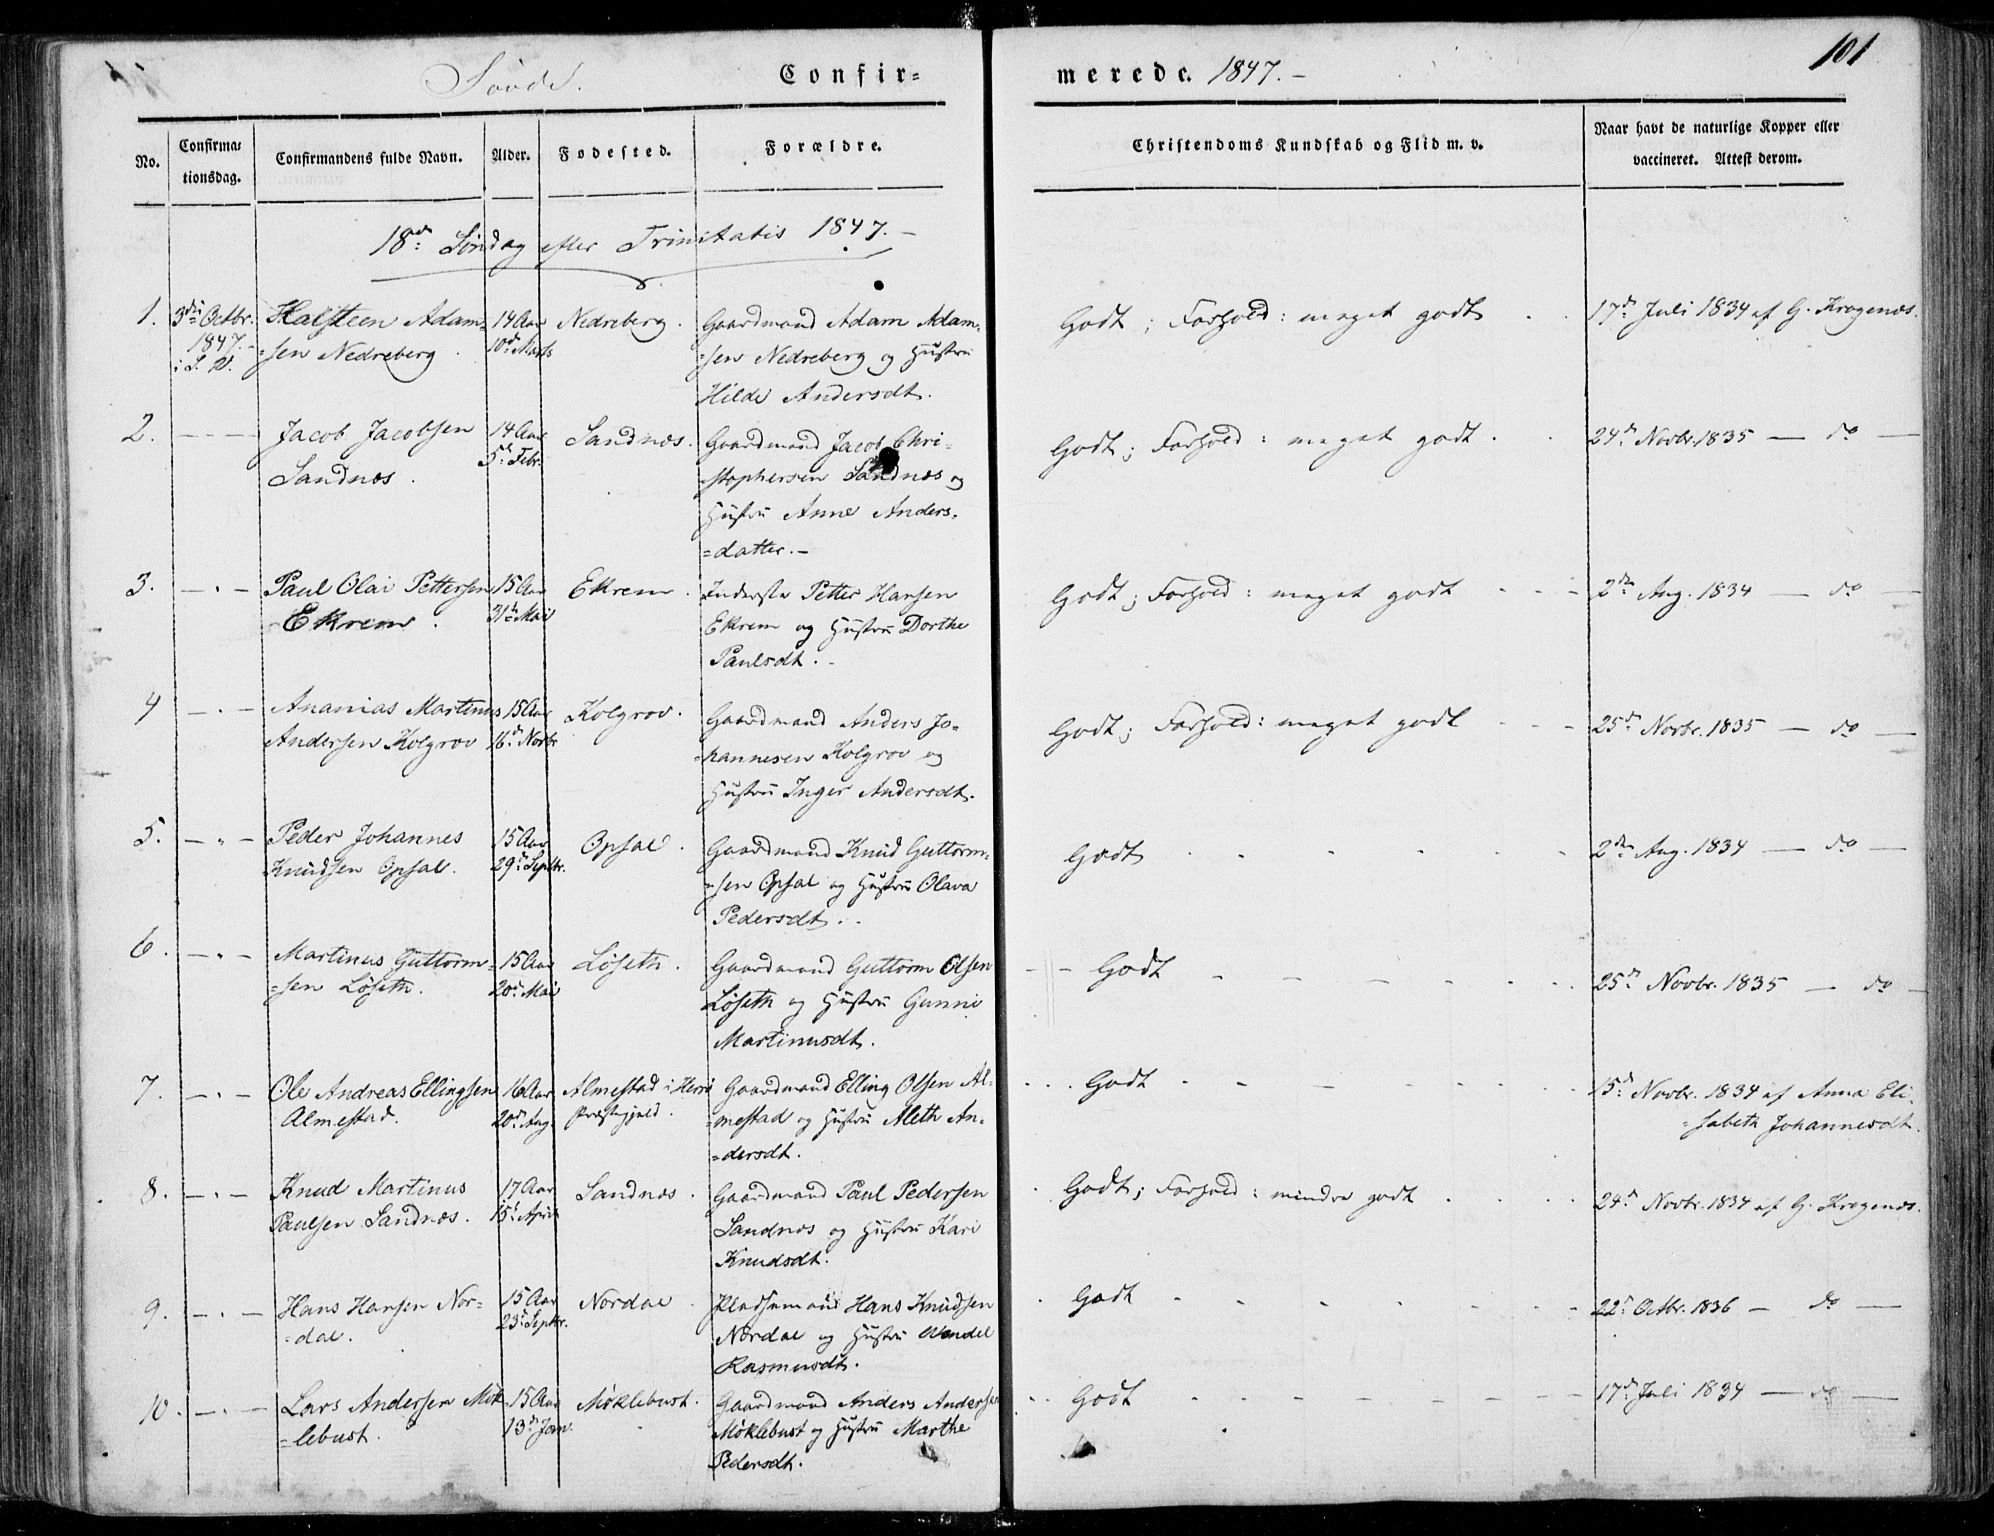 101
Confir=
merede. 1847.-
No.
Confirma=
tionsdag.
Confirmandens fulde Navn.
Alder.
Fødested.
Forældre.
Christendoms Kundskab og Flid m. v.
Naar havt de naturlige Kopper eller
vaccineret. Attest derom.
18de Søndag efter Trinitatis 1847.-
1. 3die Octbr. Halsteen Adam= 14 Aar Nedreberg. Gaardmand Adam Adam= Godt; Forhold: meget godt 17de Juli 1834 af G. Krogenæs.
1847.- =sen Nedreberg. 10de Marts =sen Nedreberg og Hustru
Hilde Andersdt.
2. - - - Jacob Jacobsen 14 Aar Sandnæs. Gaardmand Jacob Chri= Godt; Forhold: meget godt 24de Novbr. 1835 - do -
Sandnæs. 5te Febr. stophersen Sandnæs og
Hustru Anne Anders=
=datter.-
3. - " - Paul Olai Pettersen 15 Aar Ekrem. Inderste Petter Hansen Godt; Forhold: meget godt 2den Aug. 1834 - do -
Ekrem. 31te Mai Ekrem og Hustru Dorthe
Paulsdt.-
4 - " - Ananias Martinus 15 Aar Kolgrov. Gaardmand Anders Jo= Godt; Forhold: meget godt 25de Novbr. 1835 - do -
Andersen Kolgrov 16de Novbr =hannesen Kolgrov og
Hustru Inger Andersdt.
5. - " - Peder Johannes 15 Aar Opsal. Gaardmand Knud Guttorm= Godt 2den Aug. 1834 - do -
Knudsen Opsal. 29de Septbr. =sen Opsal og Hustru Olava
Pedersdt.-
6. - " - Martinus Guttorm= 15 Aar Løseth. Gaardmand Guttorm Olsen Godt 25de Novbr. 1835 - do -
=sen Løseth. 20de Mai Løseth og Hustru Gunni
Martinusdt.
7. - " - Ole Andreas Ellingsen 16 Aar Almestad i Herrø Gaardmand Elling Olsen Al= Godt 15de Novbr. 1834 af Anna Eli=
Almestad. 20de Aug Præstegjeld. =mestad og Hustru Aleth An= =sabeth Johannesdt.
=dersdt.
8. - " - Knud Martinus 17 Aar Sandnæs. Gaardmand Paul Pedersen Godt; Forhold: mindre godt 24de Novbr. 1834 af G. Krogenæs.
Paulsen Sandnæs. 15de April Sandnæs og Hustru Kari
Knudsdt.
9. - " - Hans Hansen Nor= 15 Aar Nordal. Pladsemand Hans Knudsen Godt 22de Octbr. 1836 - do -
=dal. 23de Septbr. Nordal og Hustru Wendel
Rasmusdt.
10. - " - Lars Andersen Møk= 15 Aar Møklebust. Gaardmand Anders Andersen Godt 17de Juli 1834 - do -
=lebust. 13de Jan. Møklebust og Hustru Marthe
Pedersdt.